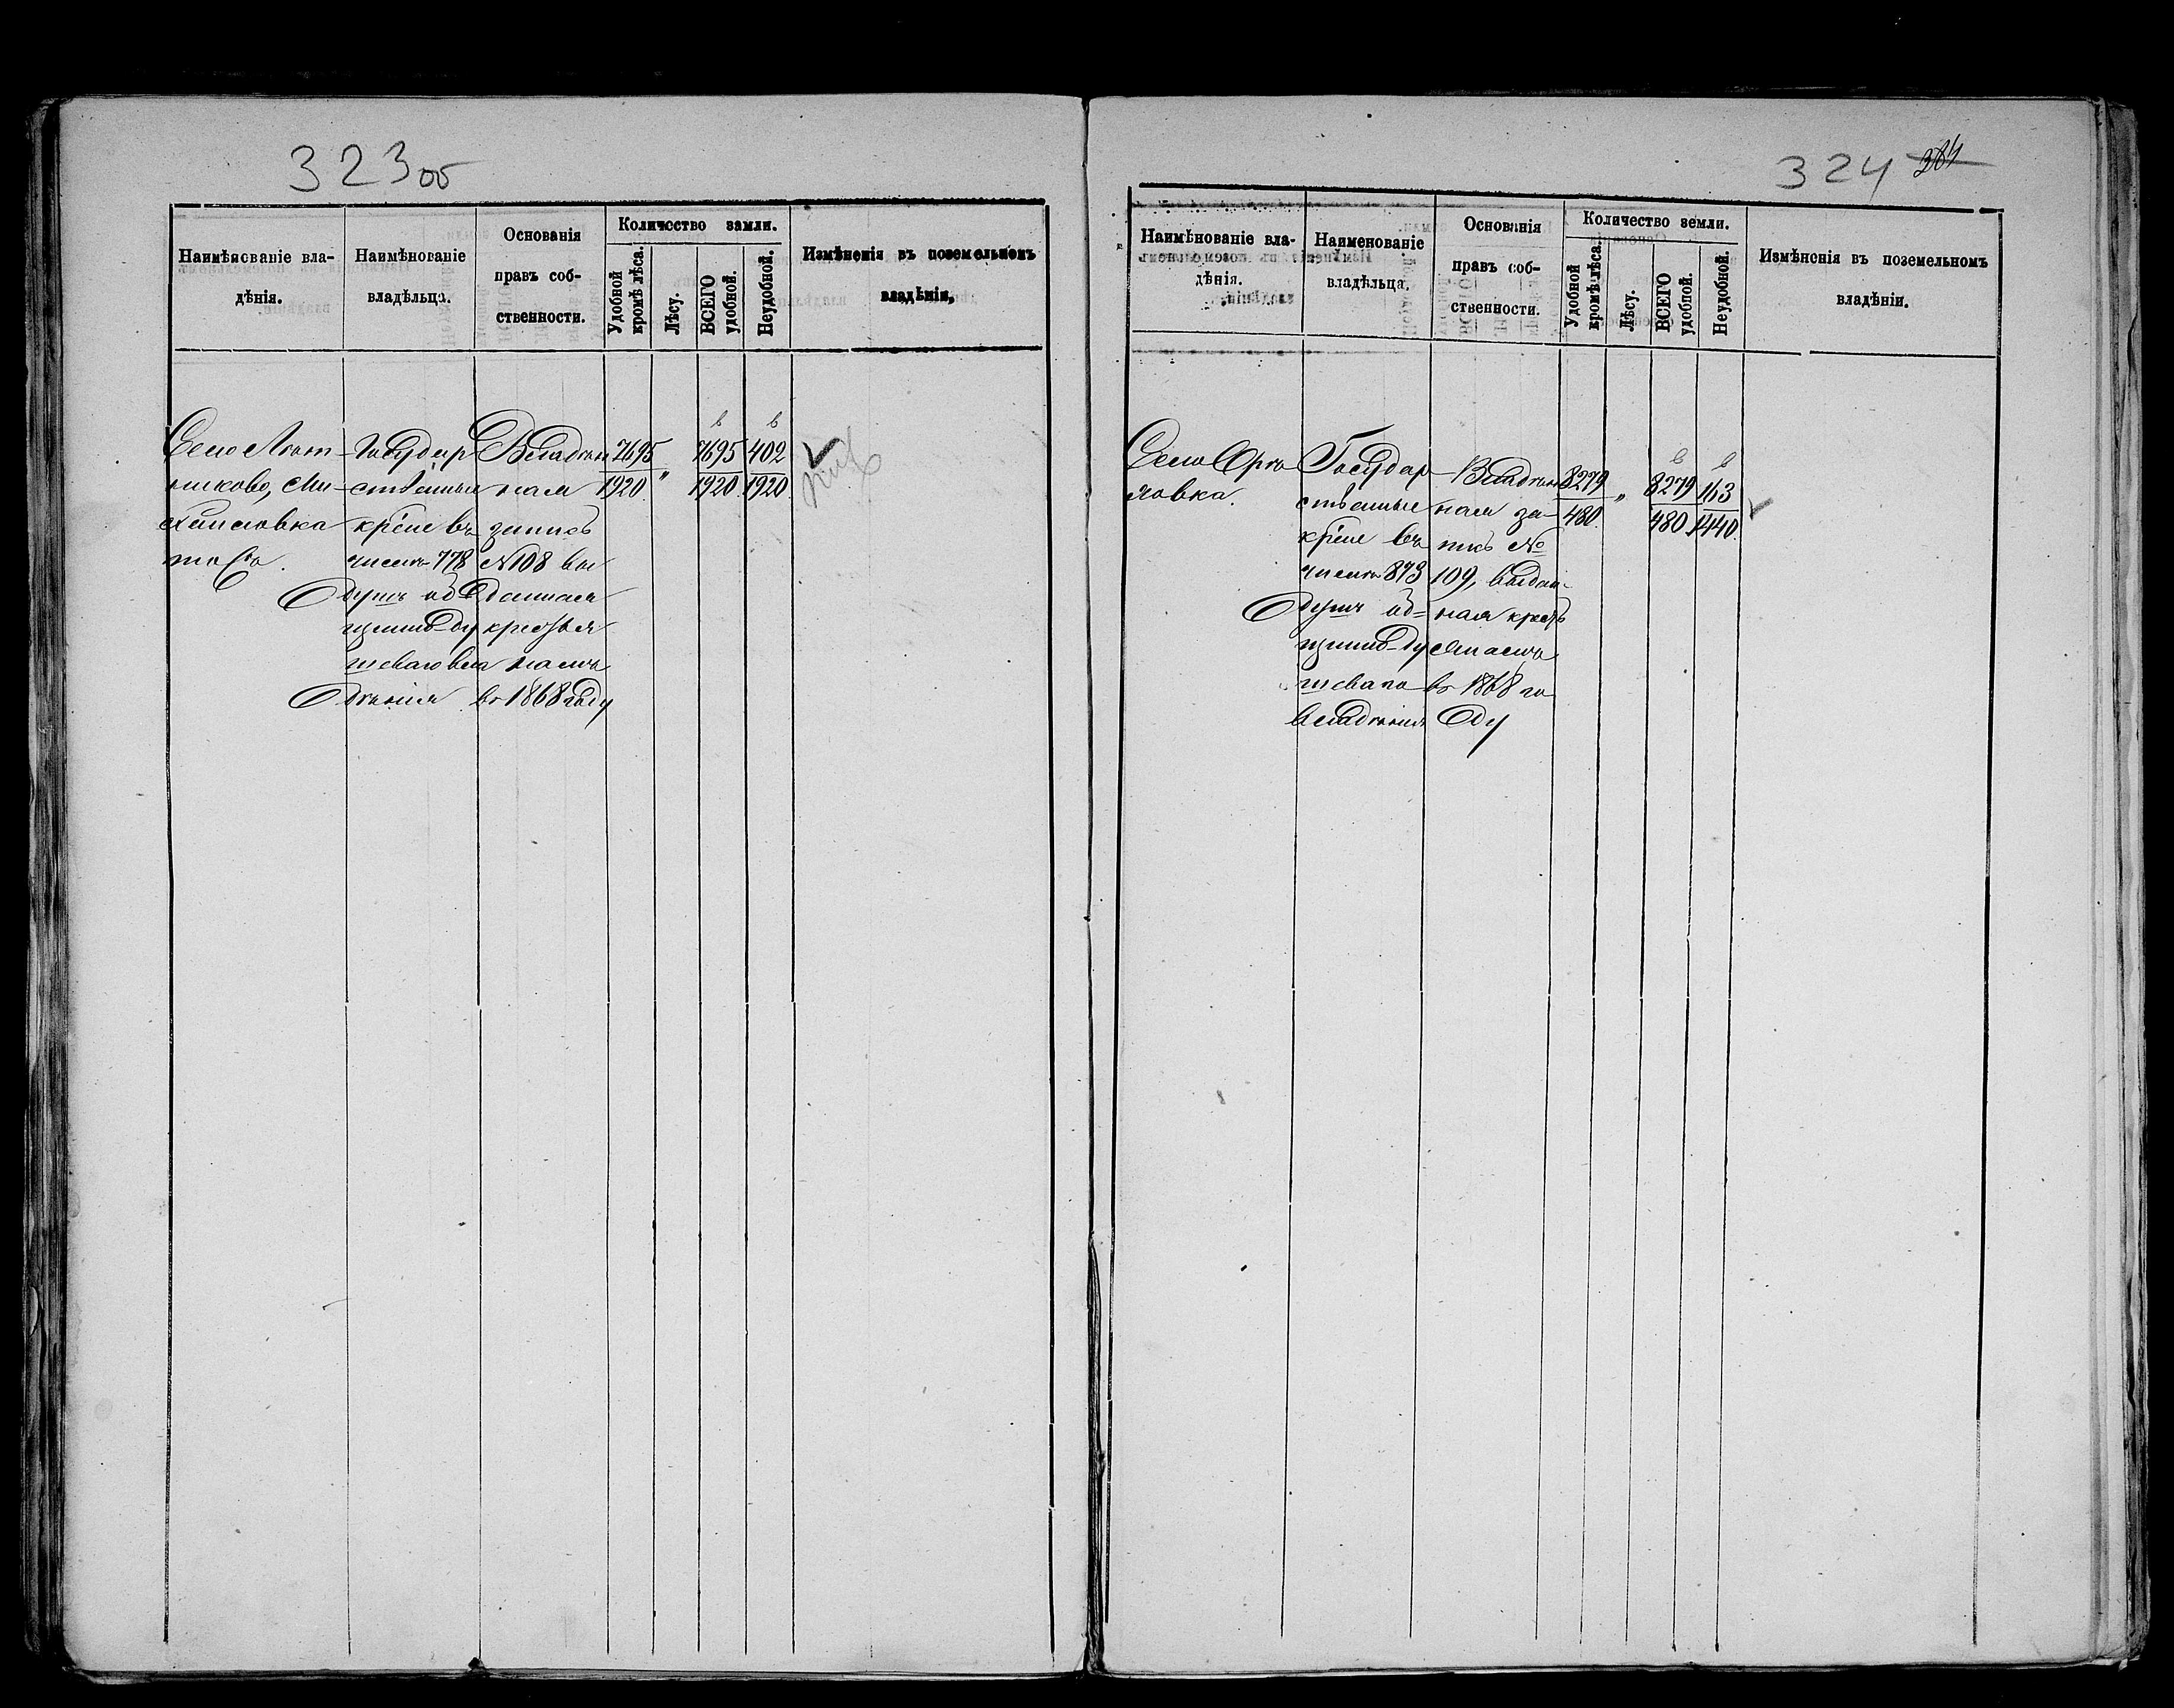 323 об
Наимѣнованіе вла-
дѣнія.
Наимѣнованіе
владѣльца.
Основанія
правъ соб-
ственности.
Количество земли.
Удобной
кромѣ лѣса.
Лѣсу.
ВСЕГО
удобной.
Неудобной.
Измѣненія въ поземельномъ
владѣніи,
Село Лют-
никово, Ми-
хайловка
тожъ.
Государ
ственные
крѣпе въ
числѣ 778
душъ об
щинно-ду
шеваго вла
дѣнія
Владѣн
ная
запись
№ 108 вы
данная
крестья
намъ
въ 1868 году
7695
1920.
"
7695
1920.
402
1920.
324
Наимѣнованіе вла-
дѣнія.
Наименованіе
владѣльца.
Основанія
правъ соб-
ственности.
Количество земли.
Удобной
кромѣ лѣса.
Лѣсу.
ВСЕГО
удобной.
Неудобной.
Измѣненія въ поземельномъ
владѣніи.
Село
ловка.
Государ
ственные
крѣпе въ
числѣ 873
душъ об-
щинно-ду
шеваго
владѣнія
Владѣн
ная за-
пись №
109, выдан-
ная кресть
янамъ
въ 1868 го
ду
8279
480.
"
8279
480
163
1440.